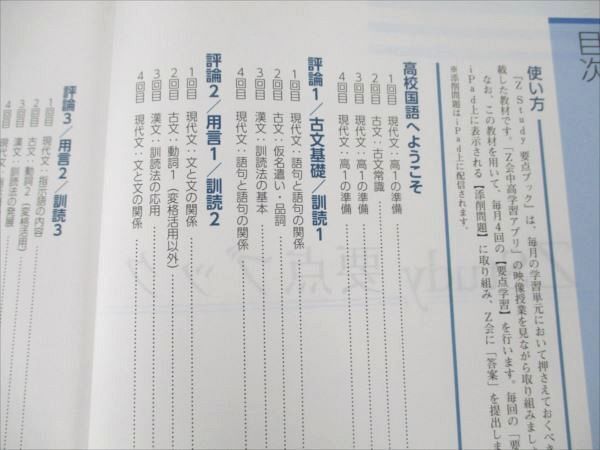 目次
使い方
「Z Study 要点ブック」は、毎月の学習単元において押さえておくべき
載した教材です。「Z会中高学習アプリ」の映像授業を見ながら取り組みまし
なお、この教材を用いて、毎月4回の【要点学習】を行います。毎回の「要
iPad上に表示される【添削問題】に取り組み、Z会に「答案」を提出しま
※添削問題はiPad上に配信されます。
高校国語へようこそ
1回目 現代文:高1の準備
2回目 古文:古文常識
3回目 現代文:高1の準備
4回目 現代文:高1の準備
評論1/古文基礎/訓読1
1回目 現代文:語句と語句の関係
2回目 古文:仮名遣い・品詞
3回目 漢文:訓読法の基本
4回目 現代文:語句と語句の関係
評論2/用言1/訓読2
1回目 現代文:文と文の関係
2回目 古文:動詞1(変格活用以外)
3回目 漢文:訓読法の応用
4回目 現代文:文と文の関係
評論3/用言2/訓読3
1回目 現代文:指示語の内容
2回目 古文:動詞2(変格活用)
3回目 漢文:訓読法の発展
4回目 現代文: